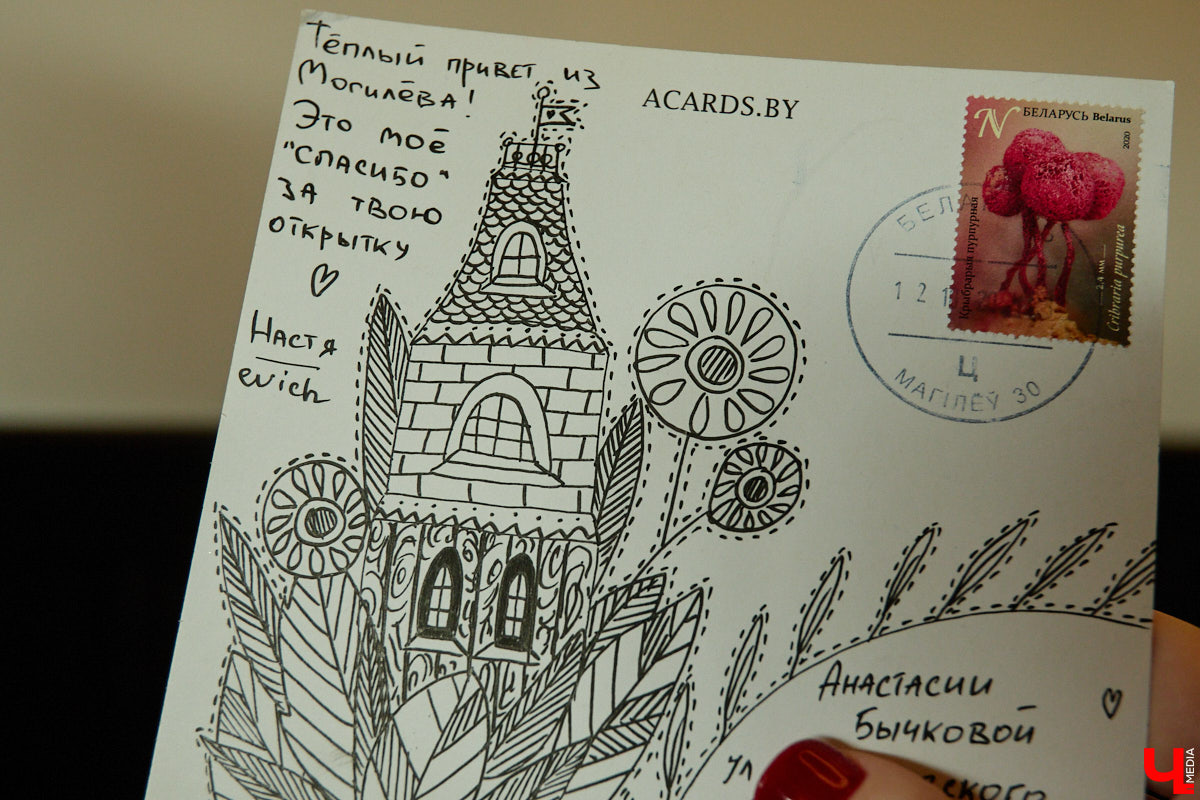 Тёплый привет из
Могилёва!
Это моё
"СПАСИБО"
за твою
открытку
Настя
evich
ACARDS.BY
N БЕЛАРУСЬ Belarus
2020
Крыбрарыя пурпурная
2,4 мм
Cribraria purpurea
БЕЛА
12 1
Ц
МАГІЛЁЎ 30
Анастасии
Бычковой
ул
ского
Ч MEDIA